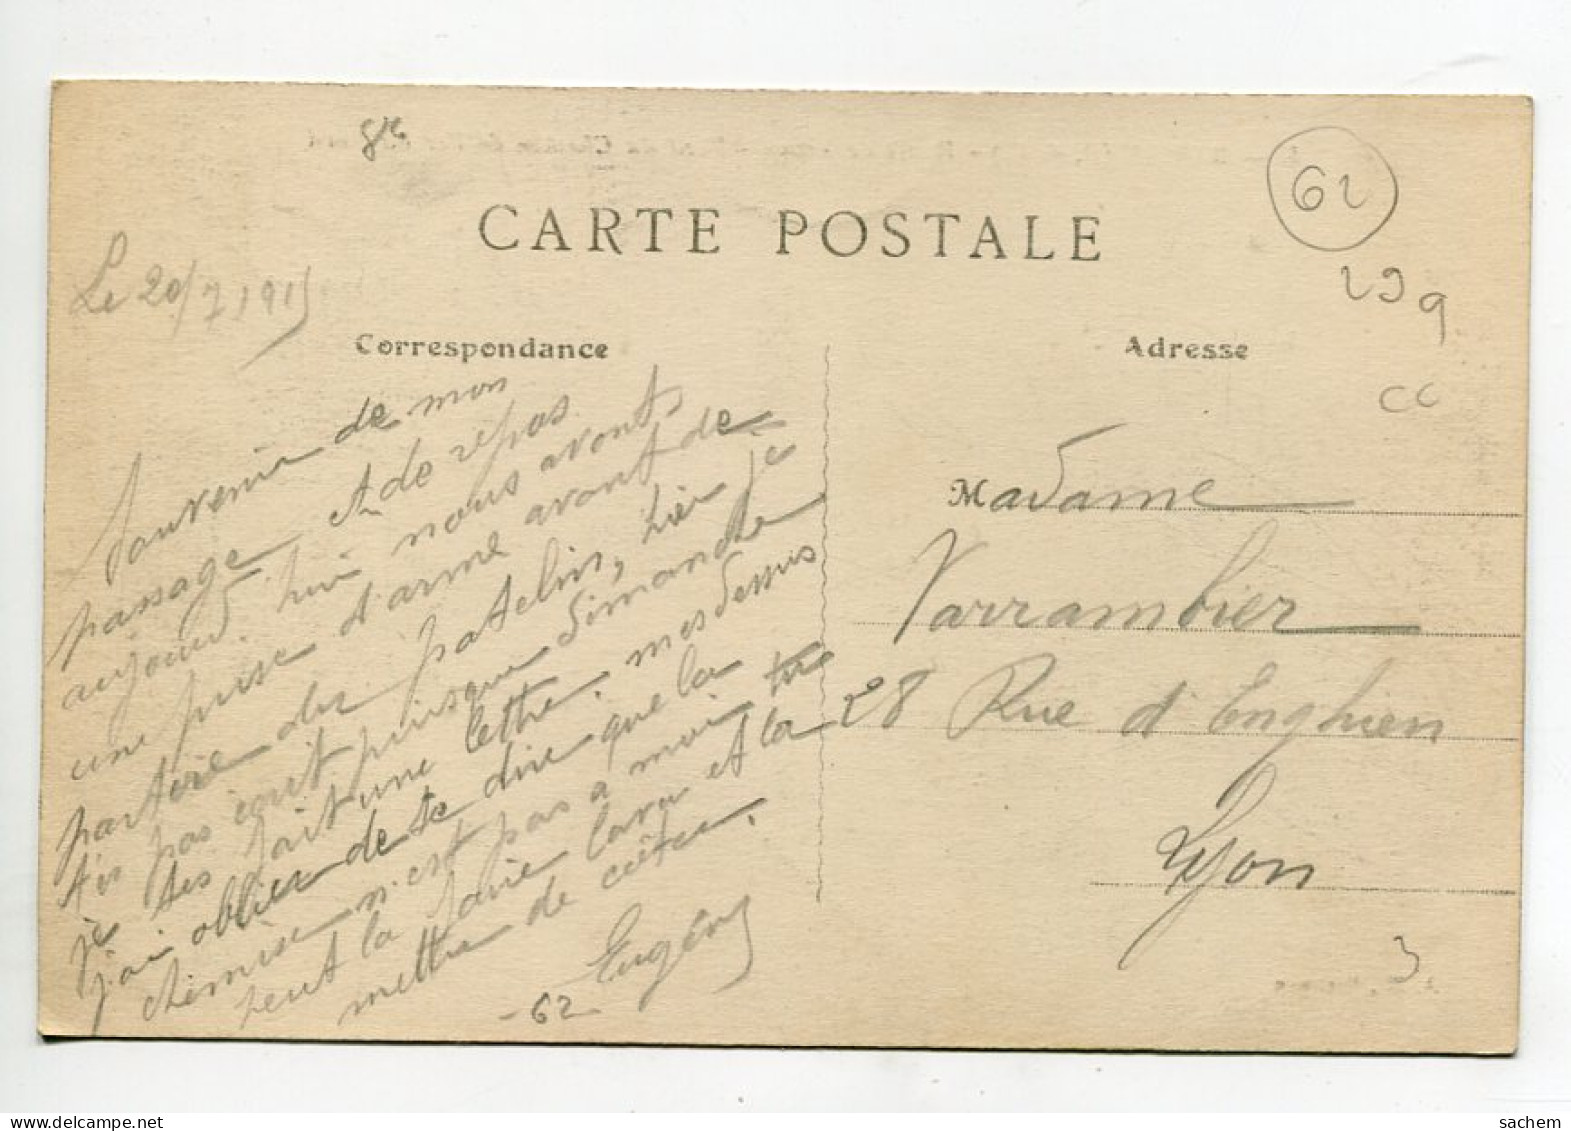 62
CARTE POSTALE
Le 20/7/1915
239
Correspondance
Adresse
cc
Souvenir de mon
passage et de repas
aujourd'hui nous avont
une prise d'arme avant de
partire du patelin, hier je
t'es pas écrit puisque dimanche
je tes fait une lettre. mes dessus
j'ai oblier de te dire que la
chemise n'est pas a moi tu
peut la faire lava et la
mettre de coêter.
Eugény
- 62
Madame
Varrambier
28 Rue d'Enghien
Lyon
3
sachem